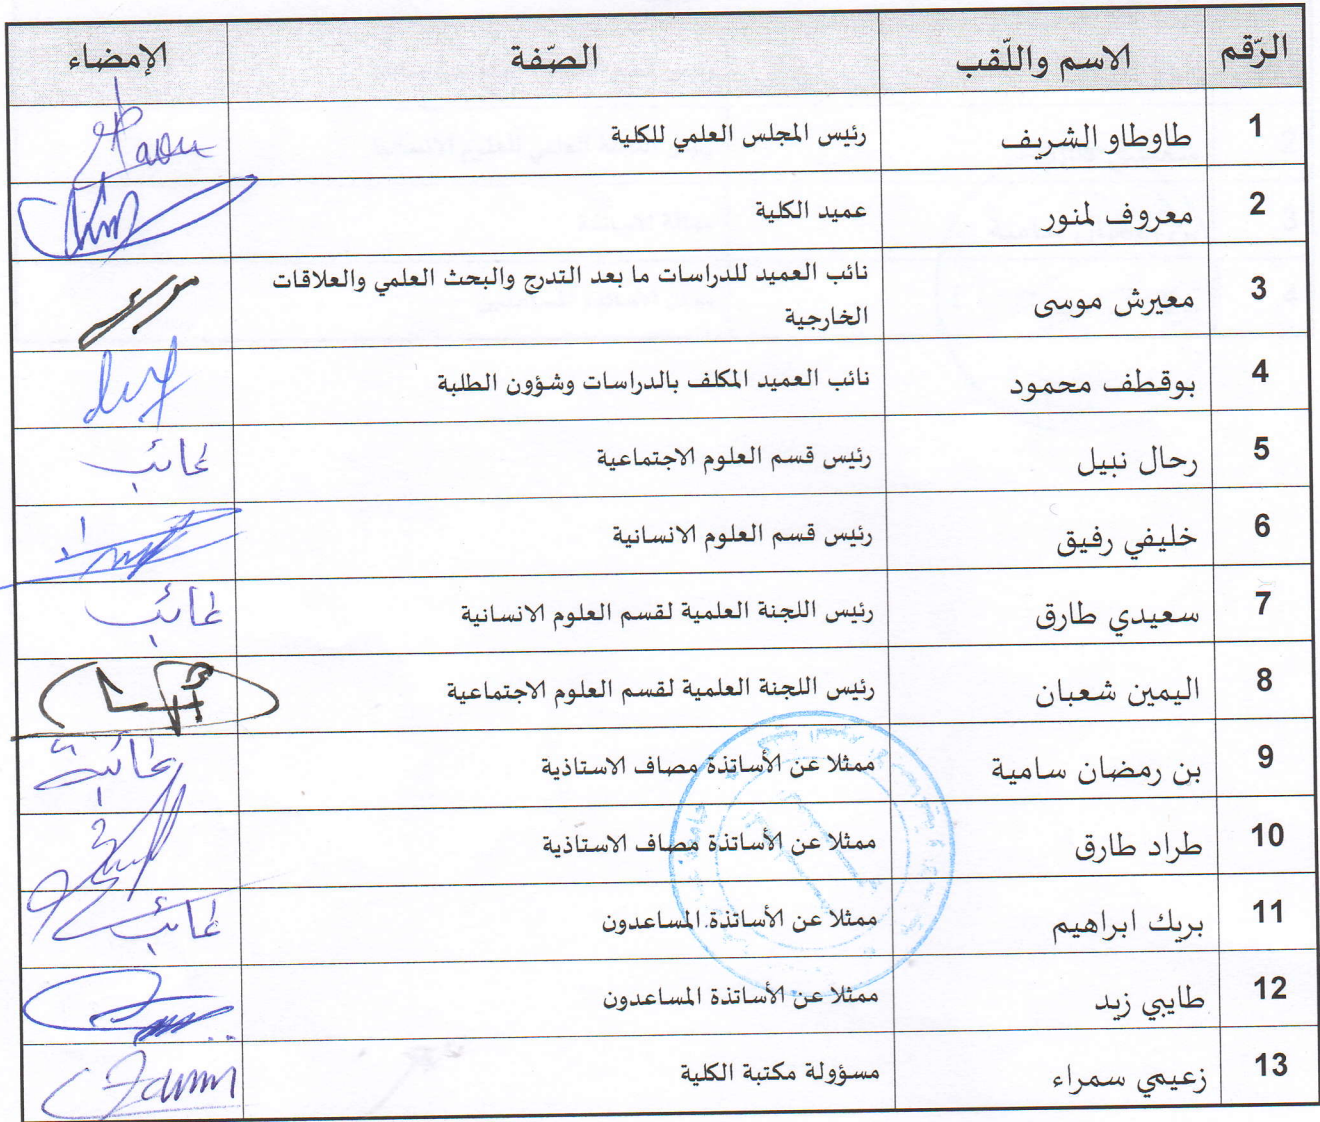 الرّقم الاسم واللّقب الصّفة الإمضاء
1 طاوطاو الشريف رئيس المجلس العلمي للكلية
2 معروف لمنور عميد الكلية
3 معيرش موسى نائب العميد للدراسات ما بعد التدرج والبحث العلمي والعلاقات
الخارجية
4 بوقطف محمود نائب العميد المكلف بالدراسات وشؤون الطلبة
5 رحال نبيل رئيس قسم العلوم الاجتماعية غائب
6 خليفي رفيق رئيس قسم العلوم الانسانية
7 سعيدي طارق رئيس اللجنة العلمية لقسم العلوم الانسانية غائب
8 اليمين شعبان رئيس اللجنة العلمية لقسم العلوم الاجتماعية
9 بن رمضان سامية ممثلا عن الأساتذة مصاف الاستاذية غائبة
10 طراد طارق ممثلا عن الأساتذة مصاف الاستاذية
11 بريك ابراهيم ممثلا عن الأساتذة المساعدون غائب
12 طايبي زيد ممثلا عن الأساتذة المساعدون
13 زعيمي سمراء مسؤولة مكتبة الكلية